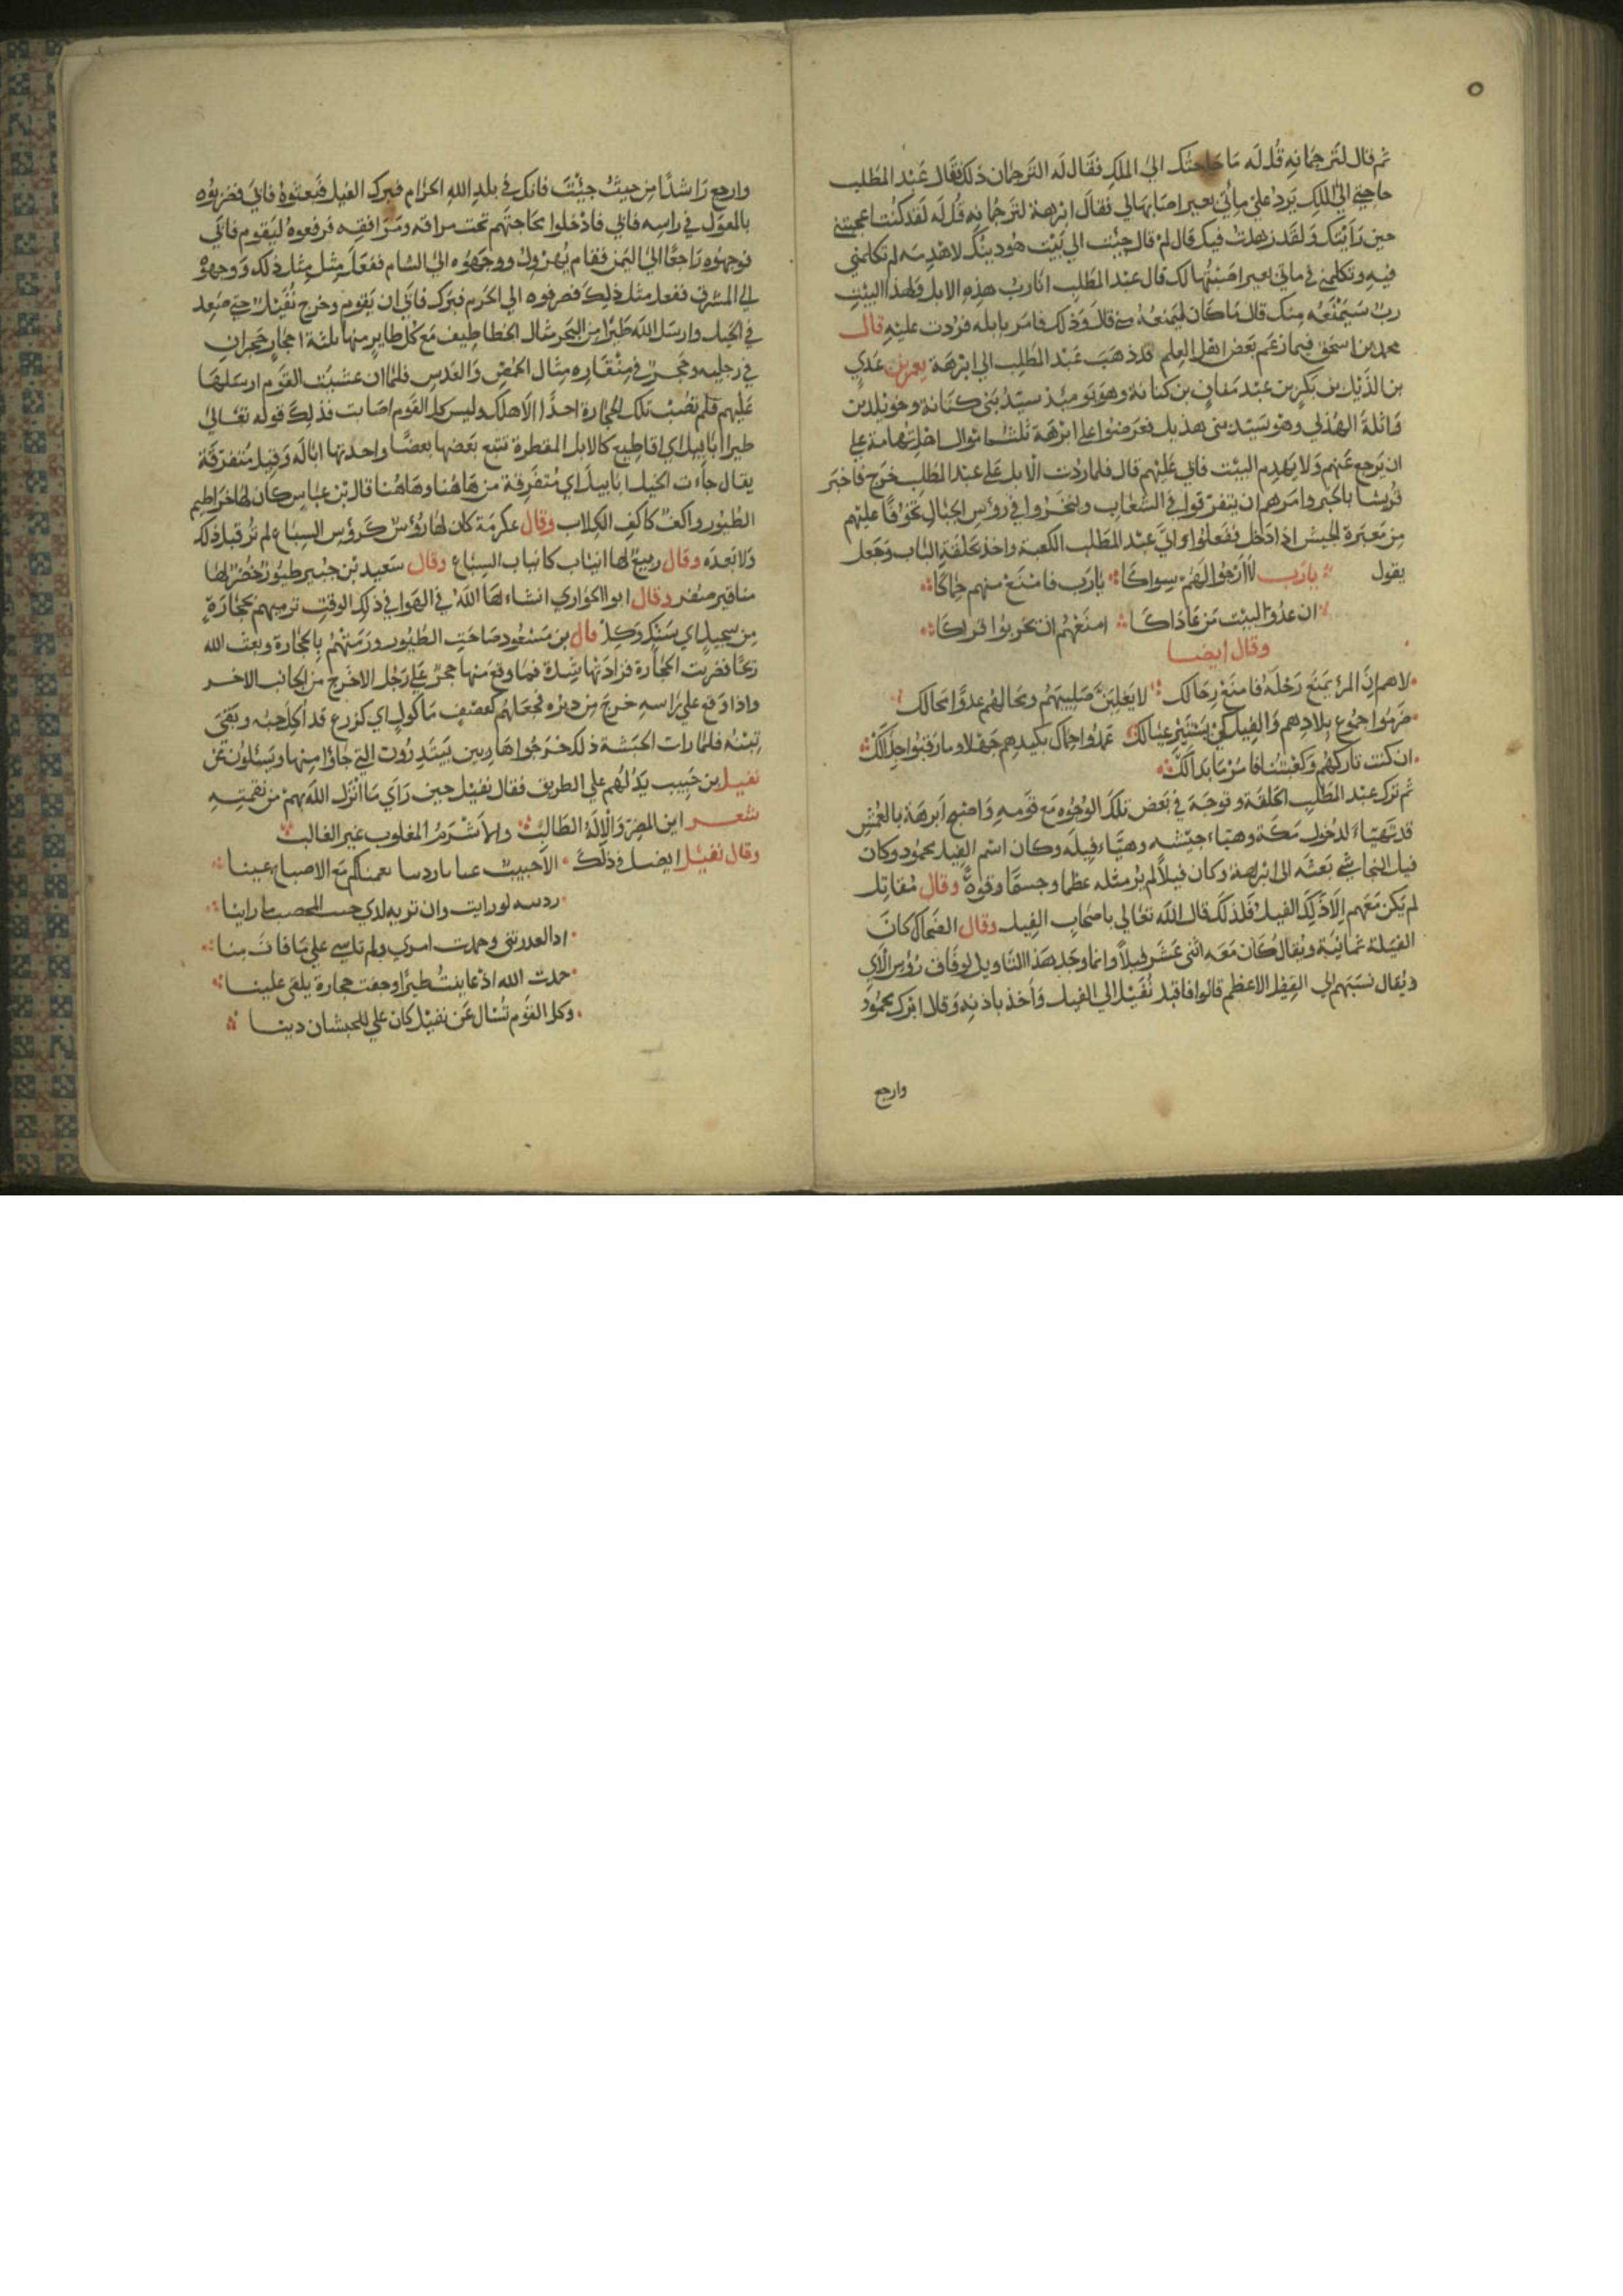 ٥
ثم قال لترجمانه قل له ما حاجتك الي الملك فقال له الترجمان ذلك فقال عبد المطلب
حاجتي الي الملك يرد علي مائتي بعير اصابها لي فقال ابرهة لترجمانه قل له لقد كنت اعجبتني
حين رايتك ولقد زهدت فيك قال لم قال جئت الي بيت هو دينك لاهدمه لم تكلمني
فيه وتكلمني في مائتي بعير اصبتها لك قال عبد المطلب انا رب هذه الابل ولهذا البيت
رب سيمنعه منك قال ما كان ليمنعه مني قال وذلك فامر بابله فردت عليه قال
محمد بن اسحق فيما زعم بعض اهل العلم قد ذهب عبد المطلب الي ابرهة يعمر بن عدي
بن الدئيل بن بكر بن عبد مناف بن كنانة وهو يوميذ سيد بني كنانة وخويلد بن
واثلة الهذلي وهو سيد بني هذيل فعرضوا علي ابرهة ثلث اموال اهل تهامة علي
ان يرجع عنهم ولا يهدم البيت فابي عليهم قال فلما ردت الابل علي عبد المطلب خرج فاخبر
قريشا بالخبر وامرهم ان يتفرقوا في الشعاب ويتحرزوا في رؤس الجبال تخوفا عليهم
من معرة الجيش اذا دخل ففعلوا واتي عبد المطلب الكعبة واخذ بحلقة الباب وجعل
يقول يا رب لا ارجوا لهم سواكا يا رب فامنع منهم حماكا
ان عدو البيت من عاداكا امنعهم ان يخربوا قراكا
وقال ايضا
لاهم ان المرء يمنع رحله فامنع رحالك لا يغلبن صليبهم ومحالهم عدوا محالك
جرموا جموع بلادهم والفيل كي يستبير عيالك عمدوا حماك بكيدهم جهلا وما رقبوا جلالك
ان كنت تاركهم وكعبتنا فامر ما بدا لك
ثم ترك عبد المطلب الحلقة وتوجه في بعض تلك الوجوه مع قومه واصبح ابرهة بالمغمس
قد تهياء لدخول مكة وهياء جيشه وهياء فيله وكان اسم الفيل محمود وكان
فيل النجاشي بعثه الي ابرهة وكان فيلا لم ير مثله عظما وجسما وقوة وقال مقاتل
لم يكن معهم الا ذلك الفيل فلذلك قال الله تعالي باصحاب الفيل وقال الضحاك كان
الفيلة ثمانية ويقال كان معه اثني عشر فيلا وانما وحد هذا التاويل لوفاق رؤس الآي
ويقال نسبهم الي الفيل الاعظم قالوا فاقبل نفيل الي الفيل واخذ باذنه وقال ابرك محمود
وارجع
وارجع راشدا من حيث جيئت فانك في بلد الله الحرام فبرك الفيل فبعثوه فابي فضربوه
بالمعول في راسه فابي فادخلوا محاجنهم تحت مراقه ومرافقه فرفعوه ليقوم فابي
فوجهوه راجعا الي اليمن فقام يهرول ووجهوه الي الشام ففعل مثل مثل ذلك ووجهوه
الي المشرق ففعل مثل ذلك فصرفوه الي الحرم فبرك فابي ان يقوم وخرج نفيل حتي صعد
في الجبل وارسل الله طيرا من البحر مثال الخطاطيف مع كل طاير منها ثلثة احجار حجران
في رجليه وحجر في منقاره مثال الحمص والعدس فلما ان غشيت القوم ارسلها
عليهم فلم تصب تلك الحجارة احدا الا هلك وليس كل القوم اصابت فذلك قوله تعالي
طيرا ابابيل اي اقاطيع كالابل المقطرة تتبع بعضها بعضا واحدتها ابالة وقيل متفرقة
يقال جاءت الخيل ابابيل اي متفرقة من هاهنا وهاهنا قال بن عباس كان لها خراطيم
الطيور واكف كاكف الكلاب وقال عكرمة كان لها رؤس كرؤس السباع لم تر قبل ذلك
ولا بعده وقال ربيع لها انياب كانياب السباع وقال سعيد بن جبير طيور خضر لها
مناقير صفر وقال ابو الحواري انشاء لها الله في الهوا في ذلك الوقت ترميهم بحجارة
من سجيل اي سنك وكل قال بن مسعود صاحت الطيور ورمتهم بالحجارة وبعث الله
ريحا فضربت الحجارة فزادتها شدة فما وقع منها حجر علي رجل الا خرج من الجانب الاخر
واذا وقع علي راسه خرج من دبره فجعلهم كعصف ماكول اي كزرع قد اكل حبه وبقي
تبنه فلما رات الحبشة ذلك خرجوا هاربين يبتدرون التي جاؤا منها ويسئلون عن
نفيل بن حبيب يدلهم علي الطريق فقال نفيل حين راي ما انزل الله بهم من نقمته
شعر اين المفر والاله الطالب والاشرم المغلوب غير الغالب
وقال نفيل ايضا في ذلك الا حييت عنا يا ردينا نعمناكم مع الاصباح عينا
ردينه لو رايت وان تريه لدي جنب المحصب ما راينا
اذا لعذرتني وحمدت امري ولم تاسي علي ما فات منا
حمدت الله اذ عاينت طيرا وخفت حجارة يلقي علينا
وكل القوم تسال عن نفيل كان علي للحبشان دينا